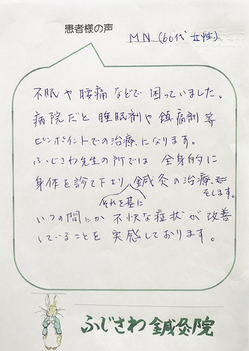 患者様の声
MN (60代 女性)
不眠や腰痛などで困っていました。
病院だと睡眠剤や鎮痛剤等
ピンポイントでの治療になります。
ふじさわ先生の所では全身的に
身体を診て下さり、鍼灸の治療を
それを基に
そします。
いつの間にか不快な症状が改善
していることを実感しております。
ふじさわ鍼灸院